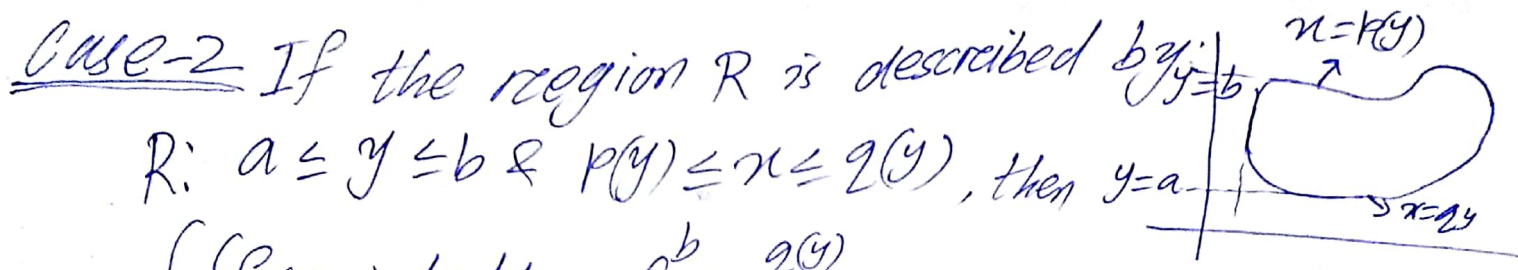 Case-2 If the rcegion R is descrcibed by:
x=p(y)
y=b
R: a ≤ y ≤ b & p(y) ≤ x ≤ q(y), then
y=a
x=qy
b q(y)